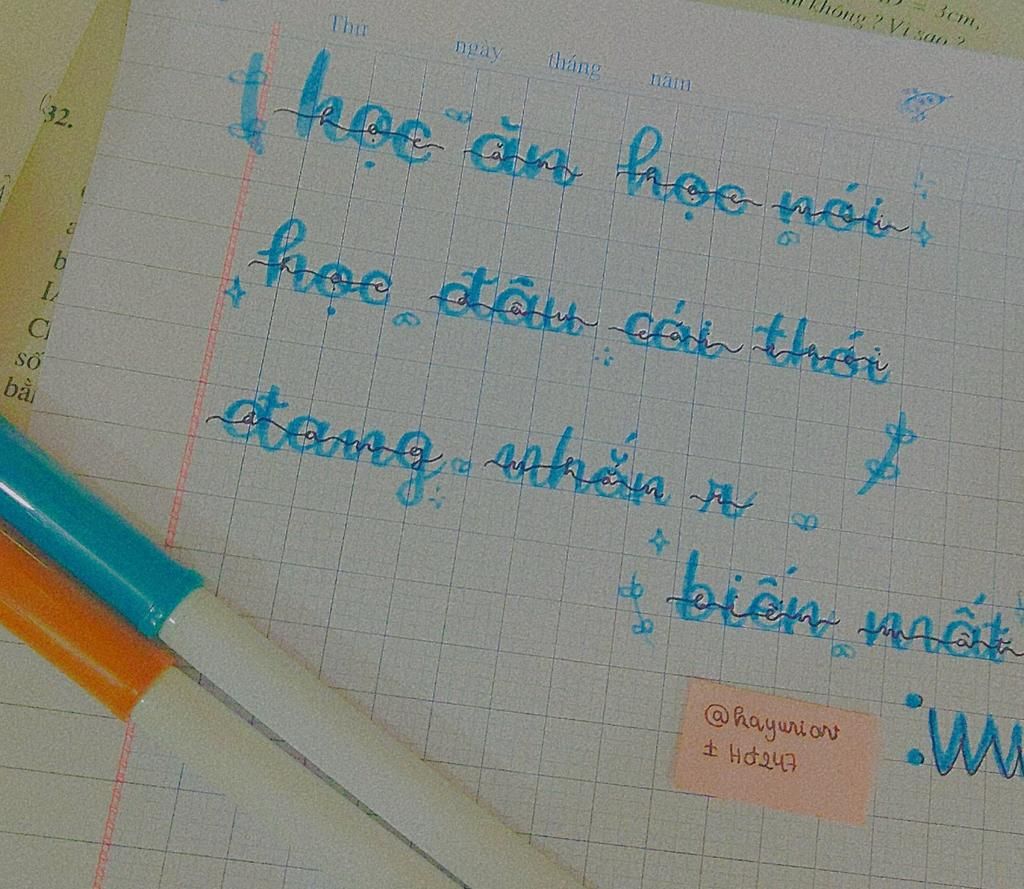 = 3cm,
không ? Vì sao ?
Thứ ngày tháng năm
32.
học ăn học nói
học đâu cái thói
đang nhắn r
biến mất
số
bằ
@hayuriart
± Hđ247